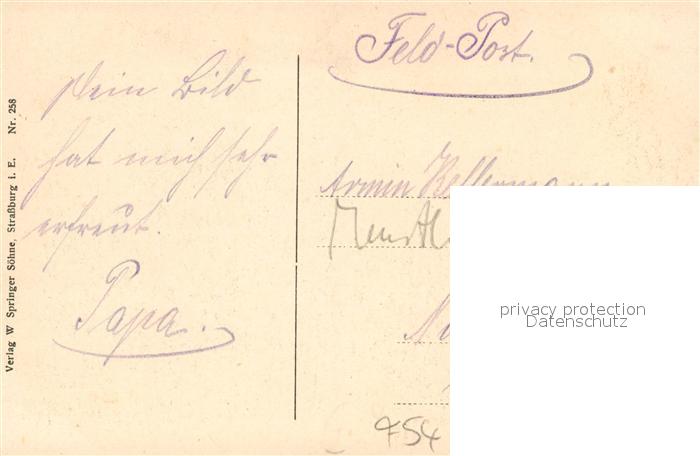 Verlag W Springer Söhne, Straßburg i. E. Nr. 258
Dein Bild
hat mich sehr
erfreut.
Papa.
Feld-Post.
Armin Kellermann
privacy protection
Datenschutz
754